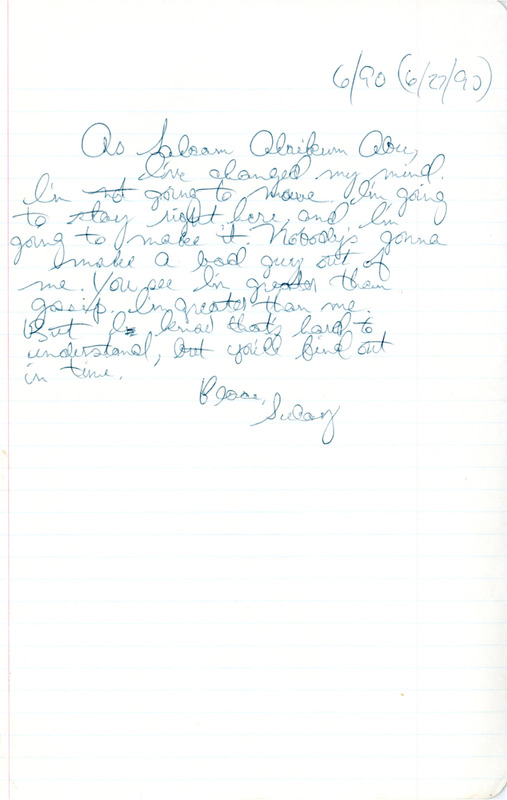 6/90 (6/27/90)
As Salaam Alaikum Abu,
I've changed my mind.
I'm not going to move. I'm going
to stay right here and I'm
going to make it. Nobody's gonna
make a bad guy out of
me. You see I'm greater than
gossip. I'm greater than me.
But I know that's hard to
understand, but you'll find out
in time.
Peace,